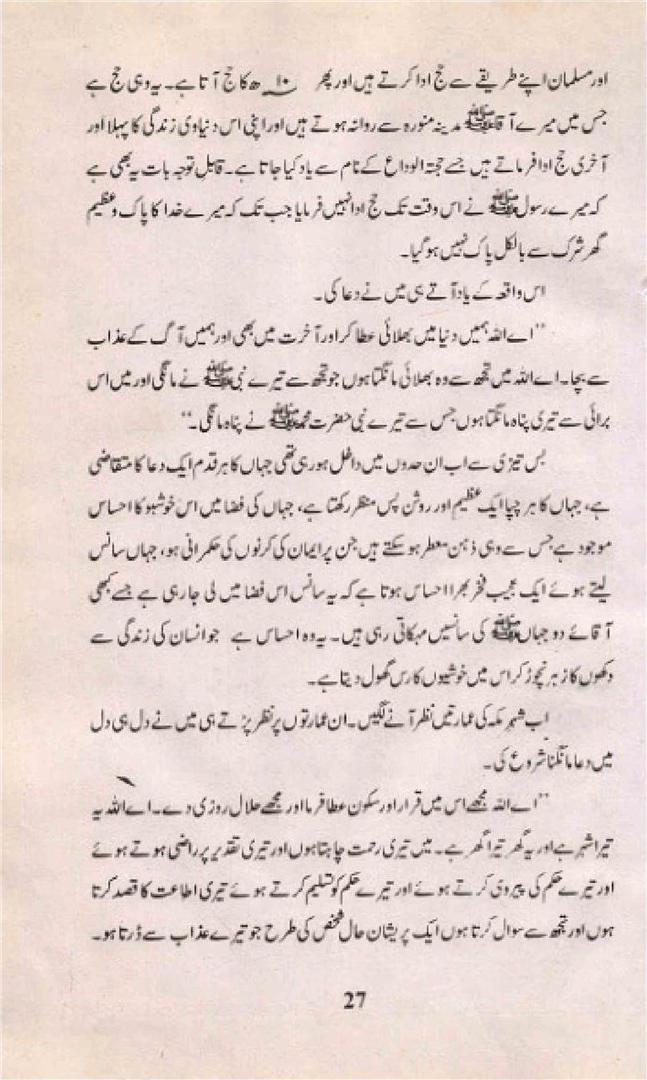 اور مسلمان اپنے طریقے سے حج ادا کرتے ہیں اور پھر ۱۰ھ کا حج آتا ہے۔ یہ وہی حج ہے
جس میں میرے آقا ﷺ مدینہ منورہ سے روانہ ہوتے ہیں اور اپنی اس دنیاوی زندگی کا پہلا اور
آخری حج ادا فرماتے ہیں جسے حجتہ الوداع کے نام سے یاد کیا جاتا ہے۔ قابل توجہ بات یہ بھی ہے
کہ میرے رسول ﷺ نے اس وقت تک حج ادا نہیں فرمایا جب تک کہ میرے خدا کا پاک و عظیم
گھر شرک سے بالکل پاک نہیں ہو گیا۔
اس واقعہ کے یاد آتے ہی میں نے دعا کی۔
"اے اللہ ہمیں دنیا میں بھلائی عطا کر اور آخرت میں بھی اور ہمیں آگ کے عذاب
سے بچا۔ اے اللہ میں تجھ سے وہ بھلائی مانگتا ہوں جو تجھ سے تیرے نبی ﷺ نے مانگی اور میں اس
برائی سے تیری پناہ مانگتا ہوں جس سے تیرے نبی حضرت محمد ﷺ نے پناہ مانگی۔"
بس تیزی سے اب ان حدوں میں داخل ہو رہی تھی جہاں کا ہر قدم ایک دعا کا متقاضی
ہے، جہاں کا ہر چپا ایک عظیم اور روشن پس منظر رکھتا ہے، جہاں کی فضا میں اس خوشبو کا احساس
موجود ہے جس سے وہی ذہن معطر ہو سکتے ہیں جن پر ایمان کی کرنوں کی حکمرانی ہو، جہاں سانس
لیتے ہوئے ایک عجیب فخر بھرا احساس ہوتا ہے کہ یہ سانس اس فضا میں لی جا رہی ہے جسے کبھی
آقائے دو جہاں ﷺ کی سانسیں مہکاتی رہی ہیں۔ یہ وہ احساس ہے جو انسان کی زندگی سے
دکھوں کا زہر نچوڑ کر اس میں خوشیوں کا رس گھول دیتا ہے۔
اب شہر مکہ کی عمارتیں نظر آنے لگیں۔ ان عمارتوں پر نظر پڑتے ہی میں نے دل ہی دل
میں دعا مانگنا شروع کی۔
"اے اللہ مجھے اس میں قرار اور سکون عطا فرما اور مجھے حلال روزی دے۔ اے اللہ یہ
تیرا شہر ہے اور یہ گھر تیرا گھر ہے۔ میں تیری رحمت چاہتا ہوں اور تیری تقدیر پر راضی ہوتے ہوئے
اور تیرے حکم کی پیروی کرتے ہوئے اور تیرے حکم کو تسلیم کرتے ہوئے تیری اطاعت کا قصد کرتا
ہوں اور تجھ سے سوال کرتا ہوں ایک پریشان حال شخص کی طرح جو تیرے عذاب سے ڈرتا ہو۔
27